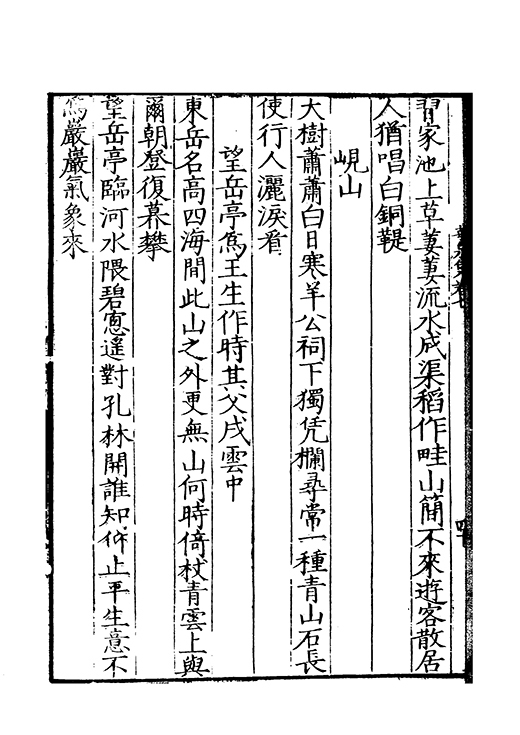 習家池上草萋萋流水成渠稻作畦山簡不來遊客散居
人猶唱白銅鞮
峴山
大樹蕭蕭白日寒羊公祠下獨凭欄尋常一種青山石長
使行人灑淚看
望岳亭為王生作時其父戍雲中
東岳名高四海間此山之外更無山何時倚杖青雲上與
爾朝登復暮攀
望岳亭臨河水隈碧窻遥對孔林開誰知仰止平生意不
為巖巖氣象來